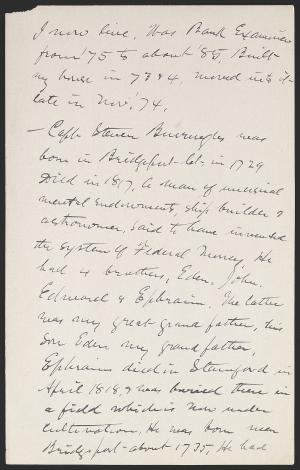 I now live. Was Bank Examiner
from '75 to about '85. Built
my house in 73 & 4, moved into it
late in Nov. '74.
— Capt. Steven Burroughs was
born in Bridgeport Ct. in 1729
Died in 1817. A man of unusual
mental endowments, ship builder &
astronomer, said to have invented
the system of Federal Money. He
had 4 brothers, Eden, John,
Edward & Ephraim. The latter
was my great grand father, his
son Eden my grand father,
Ephraim died in Stamford in
April 1818, & was buried there in
a field which is now under
cultivation. He was born near
Bridgeport about 1735. He had